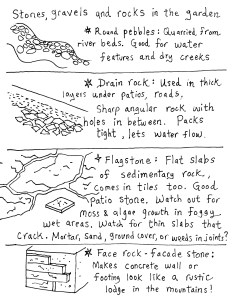 Stones, gravels and rocks in the garden
* Round pebbles: Quarried from
river beds. Good for water
features and dry creeks
* Drain rock: Used in thick
layers under patios, roads,
Sharp angular rock with
holes in between. Packs
tight, lets water flow.
* Flagstone: Flat slabs
of sedimentary rock,
comes in tiles too. Good
Patio stone. Watch out for
moss & algae growth in foggy
wet areas. Watch for thin slabs that
crack. Mortar, sand, ground cover, or weeds in joints?
* Face rock - facade stone:
Makes concrete wall or
footing look like a rustic
lodge in the mountains!